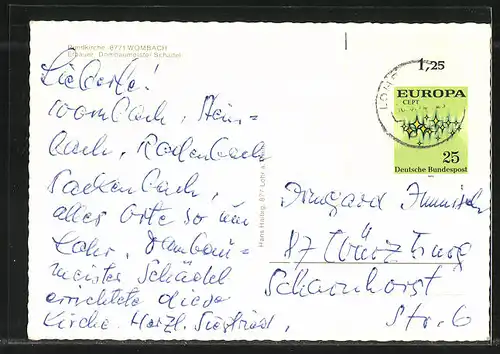 Pfarrkirche 8771 WOMBACH
Erbauer: Dombaumeister Schädel
Lieberle!
Wombach, Stein-
bach, Rodenbach
Sackenbach,
alles Orte so um
Lohr. Dombau-
meister Schädel
errichtete diese
Kirche. Herzl. Siegfried,
Hans Hartig, 877 Lohr a.
1,25
EUROPA
CEPT
25
Deutsche Bundespost
LOHR
Irmgard
87 Würzburg
Scharnhorst
Str. 6